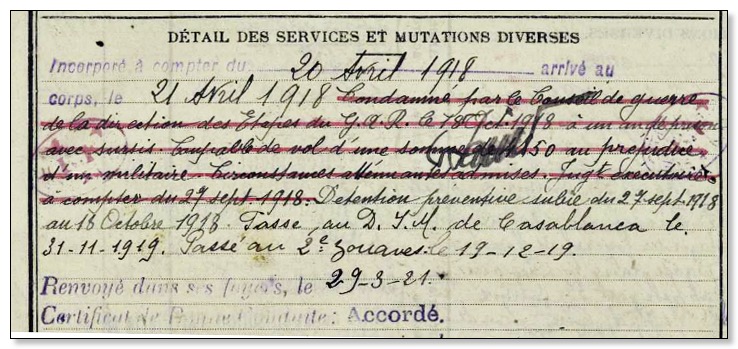 DÉTAIL DES SERVICES ET MUTATIONS DIVERSES
Incorporé à compter du 20 Avril 1918 arrivé au
corps, le 21 Avril 1918 Condamné par le Conseil de guerre
de la direction des Etapes du G.A.R. le 18 Oct. 1918 à un an de prison
avec sursis. Coupable de vol d'une somme de 150 au préjudice
d'un militaire. Circonstances atténuantes admises. Jugt exécutoire
à compter du 27 sept. 1918. Detention préventive subie du 27 sept 1918
au 18 Octobre 1918. Passé au D.I.M. de Casablanca le
31-11-1919. Passé au 2e Zouaves le 19-12-19.
Renvoyé dans ses foyers, le 29-3-21.
Certificat de Bonne Conduite : Accordé.